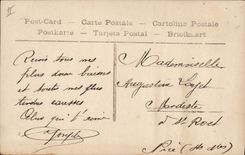 II
Post-Card — Carte Postale — Cartolina Postale
Postkarte — Tarjeta Postal — Briefkaart
Reçois tous mes
plus doux baisers
et toute mes plus
tendres caresses
Celui qui t'aime
Joseph
Mademoiselle
Augustine
Modiste
à St Roch